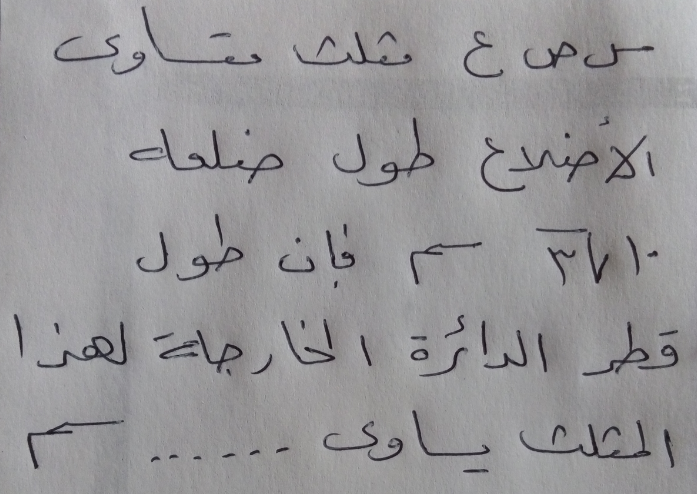 س ص ع مثلث متساوى
الأضلاع طول ضلعه
١٠√٣ سم فإن طول
قطر الدائرة الخارجة لهذا
المثلث يساوى ...... سم